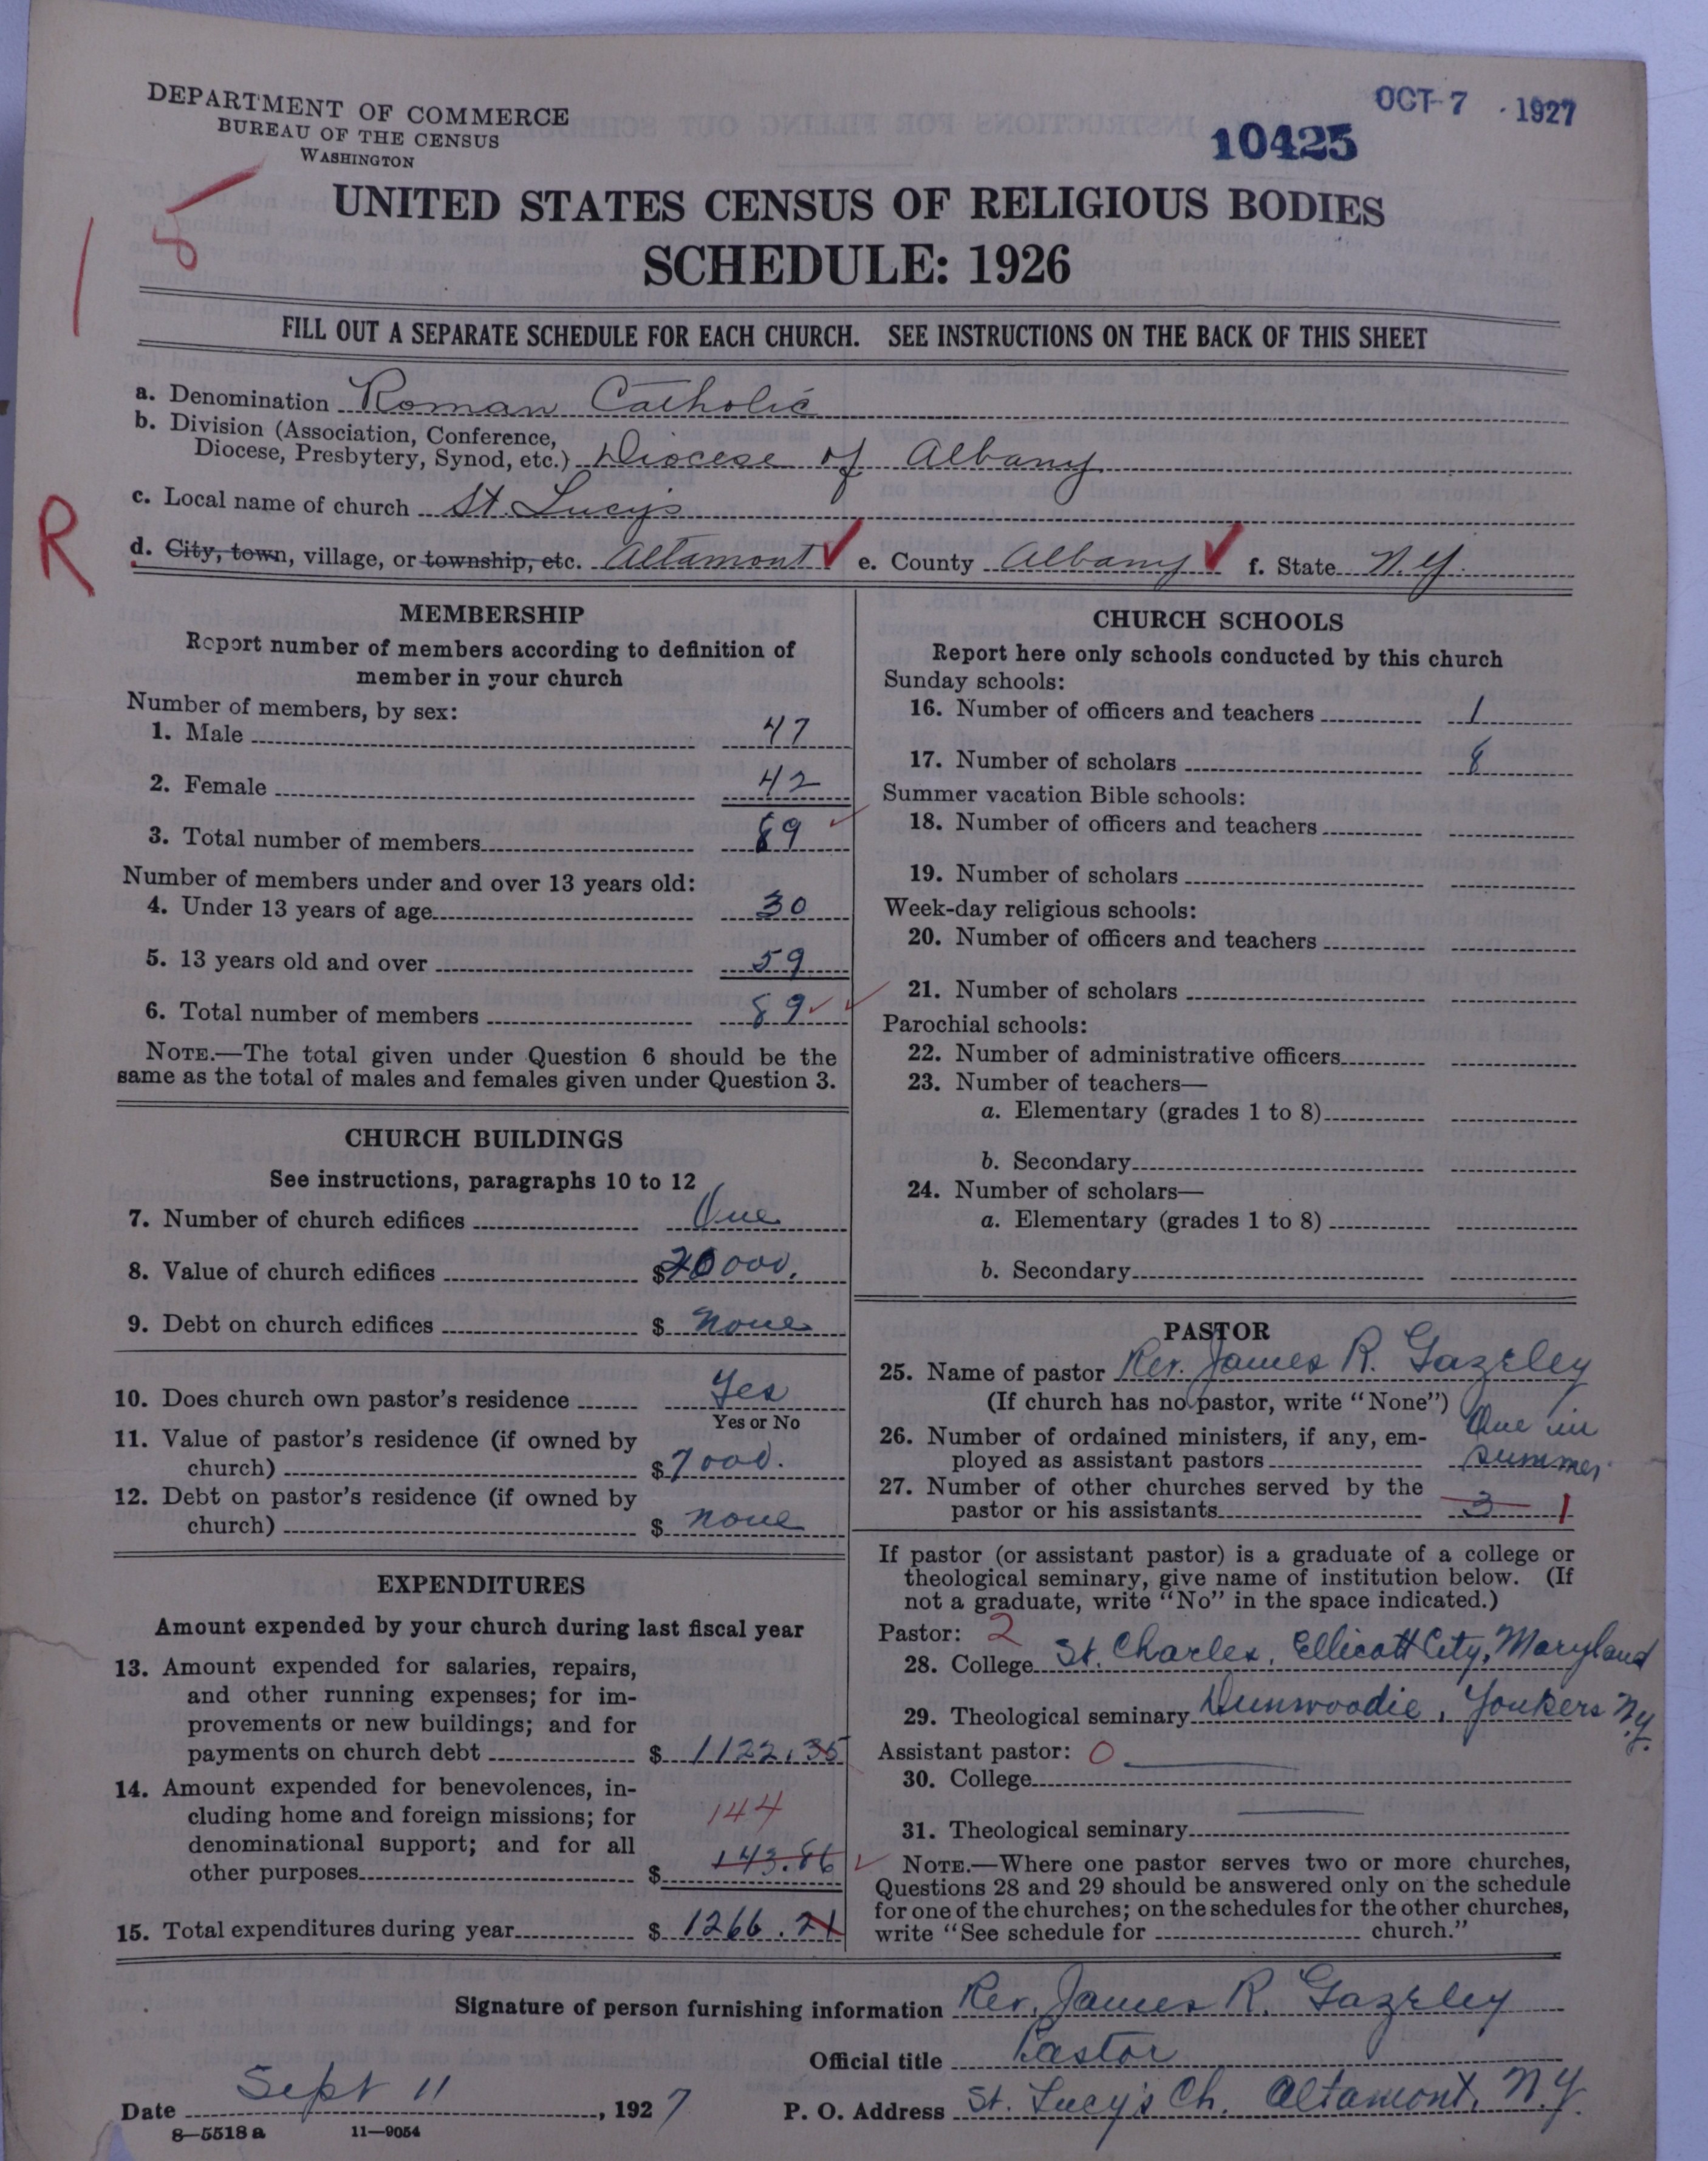 DEPARTMENT OF COMMERCE
BUREAU OF THE CENSUS
WASHINGTON
OCT 7 1927
10425
UNITED STATES CENSUS OF RELIGIOUS BODIES
SCHEDULE: 1926
FILL OUT A SEPARATE SCHEDULE FOR EACH CHURCH. SEE INSTRUCTIONS ON THE BACK OF THIS SHEET
a. Denomination Roman Catholic
b. Division (Association, Conference,
Diocese, Presbytery, Synod, etc.) Diocese of Albany
c. Local name of church St. Lucy's
R
d. City, town, village, or township, etc. Altamont e. County Albany f. State N.Y.
MEMBERSHIP
Report number of members according to definition of
member in your church
Number of members, by sex:
1. Male 47
2. Female 42
3. Total number of members 89
Number of members under and over 13 years old:
4. Under 13 years of age 30
5. 13 years old and over 59
6. Total number of members 89
NOTE.—The total given under Question 6 should be the
same as the total of males and females given under Question 3.
CHURCH BUILDINGS
See instructions, paragraphs 10 to 12
7. Number of church edifices One
8. Value of church edifices $20000.
9. Debt on church edifices $ None
10. Does church own pastor's residence Yes
Yes or No
11. Value of pastor's residence (if owned by
church) $7000.
12. Debt on pastor's residence (if owned by
church) $ none
EXPENDITURES
Amount expended by your church during last fiscal year
13. Amount expended for salaries, repairs,
and other running expenses; for im-
provements or new buildings; and for
payments on church debt $ 1122.35
14. Amount expended for benevolences, in-
cluding home and foreign missions; for 144
denominational support; and for all
other purposes $ 143.86
15. Total expenditures during year $ 1266.21
CHURCH SCHOOLS
Report here only schools conducted by this church
Sunday schools:
16. Number of officers and teachers 1
17. Number of scholars 8
Summer vacation Bible schools:
18. Number of officers and teachers
19. Number of scholars
Week-day religious schools:
20. Number of officers and teachers
21. Number of scholars
Parochial schools:
22. Number of administrative officers
23. Number of teachers—
a. Elementary (grades 1 to 8)
b. Secondary
24. Number of scholars—
a. Elementary (grades 1 to 8)
b. Secondary
PASTOR
25. Name of pastor Rev. James R. Gazeley
(If church has no pastor, write "None")
26. Number of ordained ministers, if any, em- One in
ployed as assistant pastors summer
27. Number of other churches served by the
pastor or his assistants 3 1
If pastor (or assistant pastor) is a graduate of a college or
theological seminary, give name of institution below. (If
not a graduate, write "No" in the space indicated.)
Pastor: 2
28. College St. Charles, Ellicott City, Maryland
29. Theological seminary Dunwoodie, Yonkers N.Y.
Assistant pastor: 0
30. College
31. Theological seminary
NOTE.—Where one pastor serves two or more churches,
Questions 28 and 29 should be answered only on the schedule
for one of the churches; on the schedules for the other churches,
write "See schedule for church."
Signature of person furnishing information Rev. James R. Gazeley
Official title Pastor
Date Sept 11, 1927
P. O. Address St. Lucy's Ch. Altamont, N.Y.
8—5518 a 11—9054